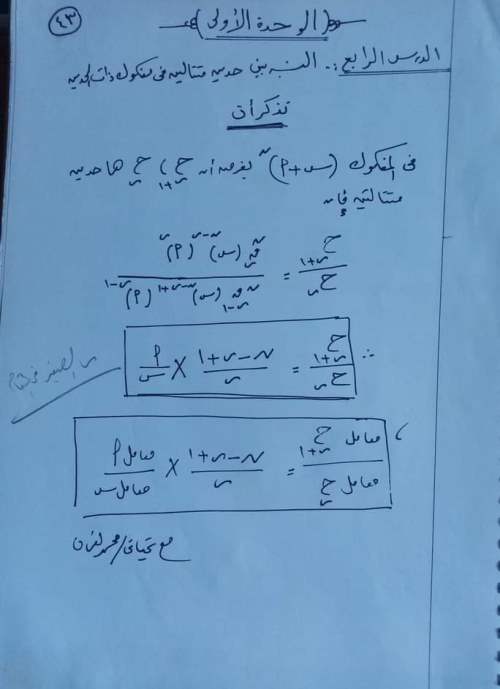 ٤٣
(الوحدة الأولى)
الدرس الرابع :. النسبة بين حدين متتاليين في مفكوك ذات الحدين
تذكرات
في المفكوك (س+٢)^ن بفرض أن ح_{ر+١} ، ح_ر هما حدين
متتاليين فإن
ح_{ر+١} / ح_ر = ^نق_ر (س)^{ن-ر} (٢)^ر / ^نق_{ر-١} (س)^{ن-ر+١} (٢)^{ر-١}
∴ ح_{ر+١} / ح_ر = (ن-ر+١) / ر × ٢ / س
، معامل ح_{ر+١} / معامل ح_ر = (ن-ر+١) / ر × معامل ٢ / معامل س
مع تحياتي / محمد